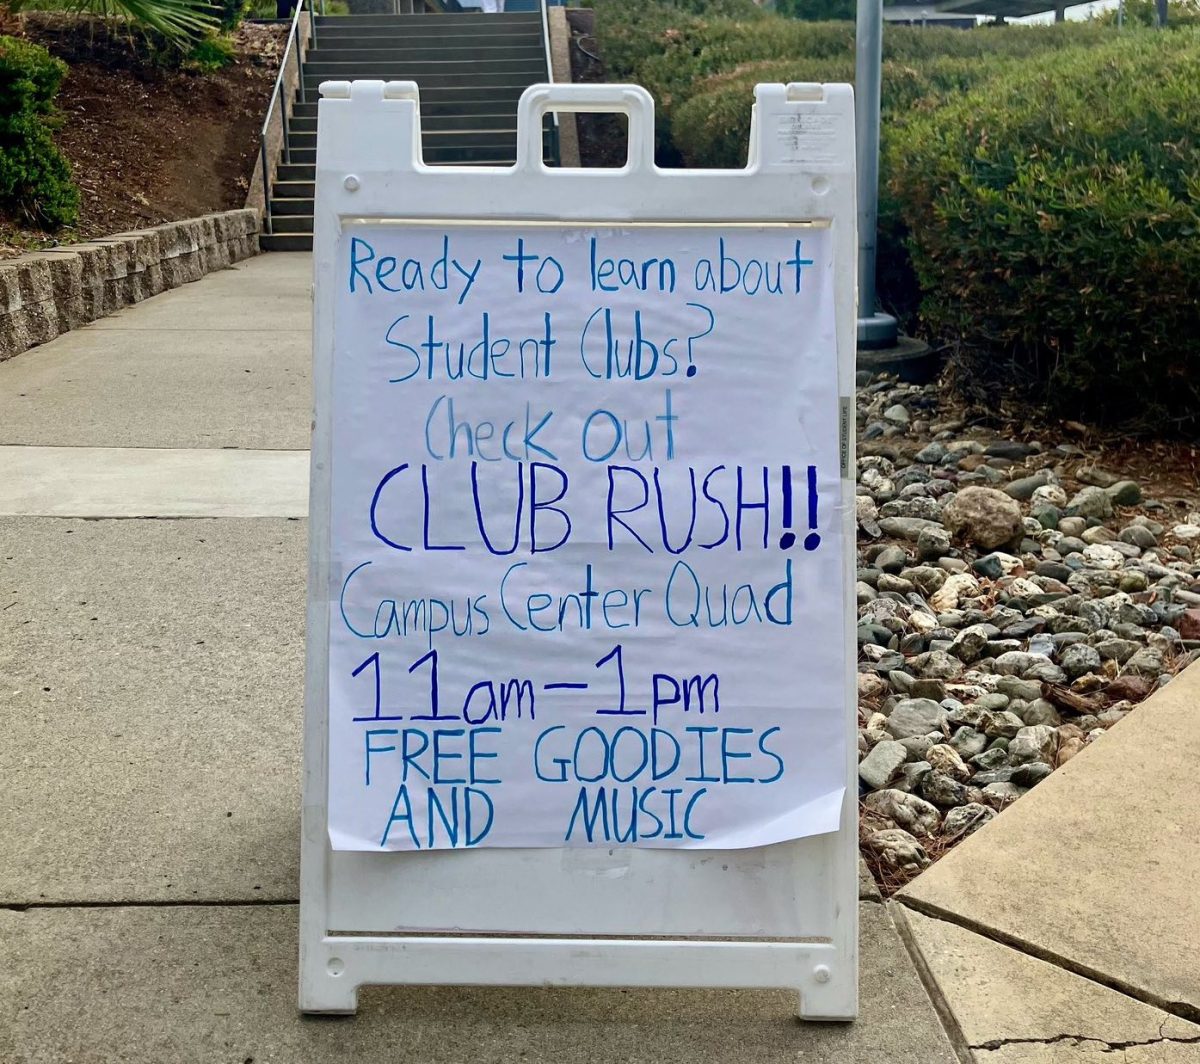 Ready to learn about
Student Clubs?
Check Out
CLUB RUSH!!
Campus Center Quad
11am-1pm
FREE GOODIES
AND MUSIC
OFFICE OF STUDENT LIFE